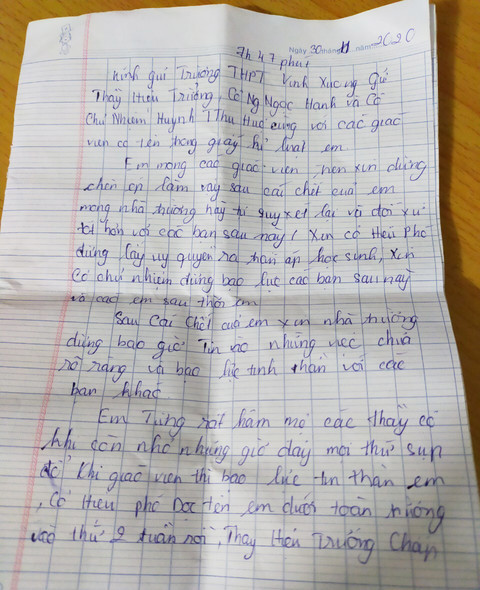 7h 47 phút
Ngày 30 tháng 11 năm 2020
Kính gửi Trường THPT Vĩnh Xương Gửi
Thầy Hiệu Trưởng, Cô Ng Ngọc Hạnh và Cô
Chủ Nhiệm Huỳnh T Thu Huệ cùng với các giáo
viên có tên trong giấy kỉ luật em
Em mong các giáo viên, nên xin đừng
chèn ép làm vậy sau cái chết của em
mong nhà trường hãy tự suy xét lại và đối xử
tốt hơn với các bạn sau này! Xin cô Hiệu Phó
đừng lấy uy quyền ra đàn áp học sinh, xin
Cô chủ nhiệm đừng bạo lực các bạn sau này
và các em sau thời em
Sau Cái Chết của em xin nhà trường
đừng bao giờ Tin vào những việc chưa
rõ ràng và bạo lực tinh thần với các
bạn khác.
Em Từng rất hâm mộ các thầy cô
khi còn nhỏ nhưng giờ đây mọi thứ sụp
đổ Khi giáo viên thì bạo lực tin thần em
, Cô Hiệu phó Đọc tên em dưới toàn trường
vào thứ 2 tuần rồi, Thầy Hiệu Trưởng Chấp